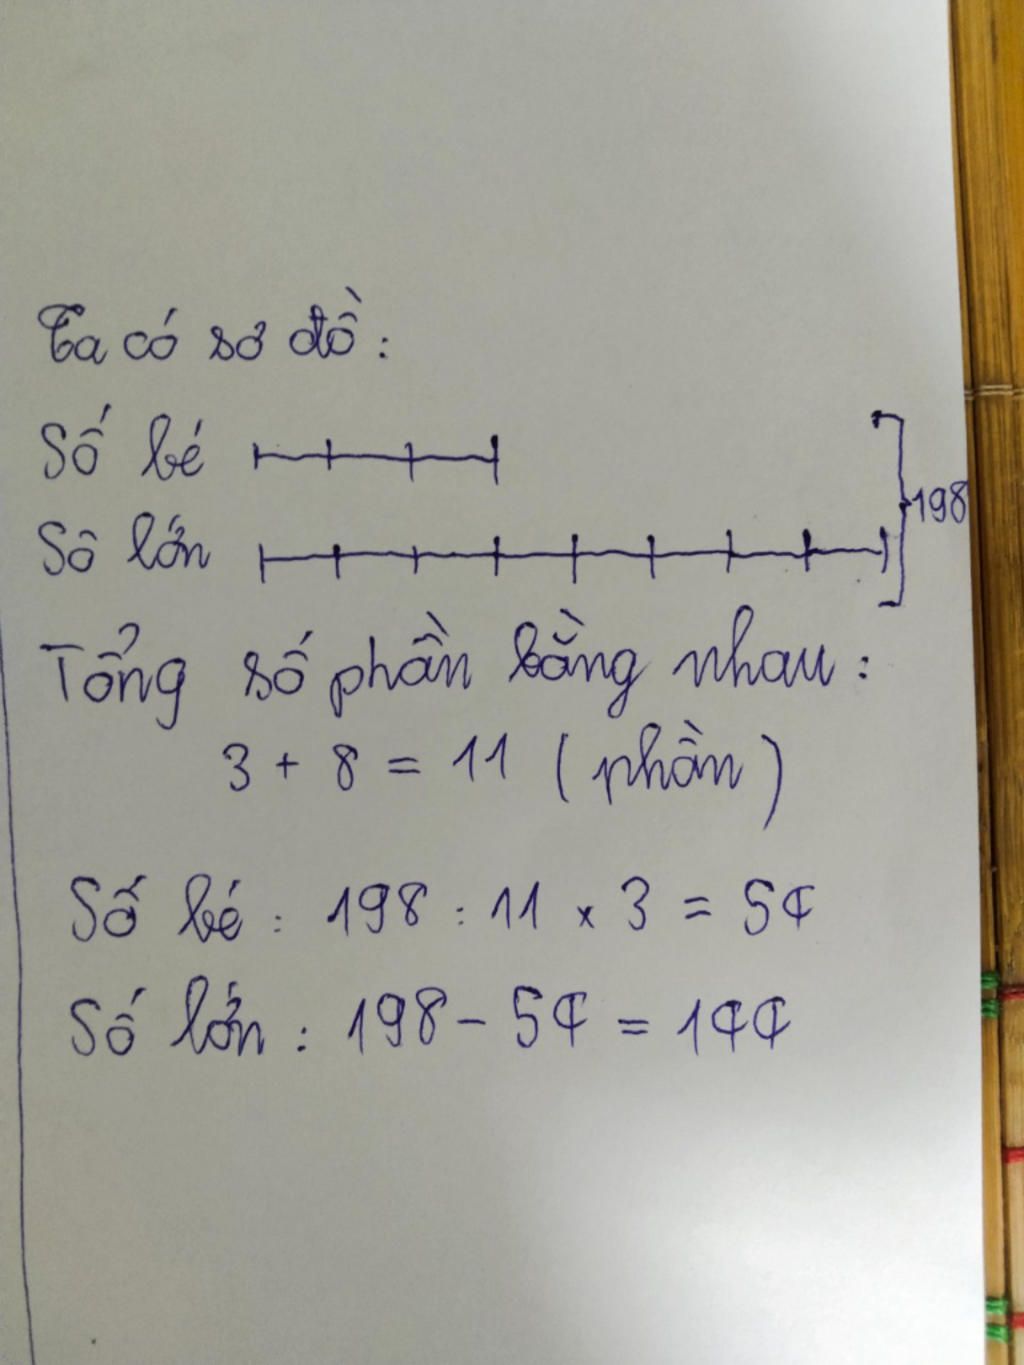 Ta có sơ đồ:
Số bé
198
Số lớn
Tổng số phần bằng nhau:
3 + 8 = 11 (phần)
Số bé: 198 : 11 x 3 = 54
Số lớn: 198 - 54 = 144